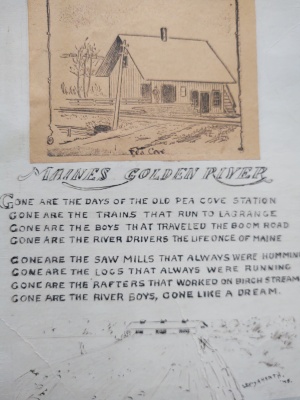 Pea Cove
MAINES GOLDEN RIVER
GONE ARE THE DAYS OF THE OLD PEA COVE STATION
GONE ARE THE TRAINS THAT RUN TO LAGRANGE
GONE ARE THE BOYS THAT TRAVELED THE BOOM ROAD
GONE ARE THE RIVER DRIVERS THE LIFE ONCE OF MAINE
GONE ARE THE SAW MILLS THAT ALWAYS WERE HUMMING
GONE ARE THE LOGS THAT ALWAYS WERE RUNNING
GONE ARE THE RAFTERS THAT WORKED ON BIRCH STREAM
GONE ARE THE RIVER BOYS, GONE LIKE A DREAM.